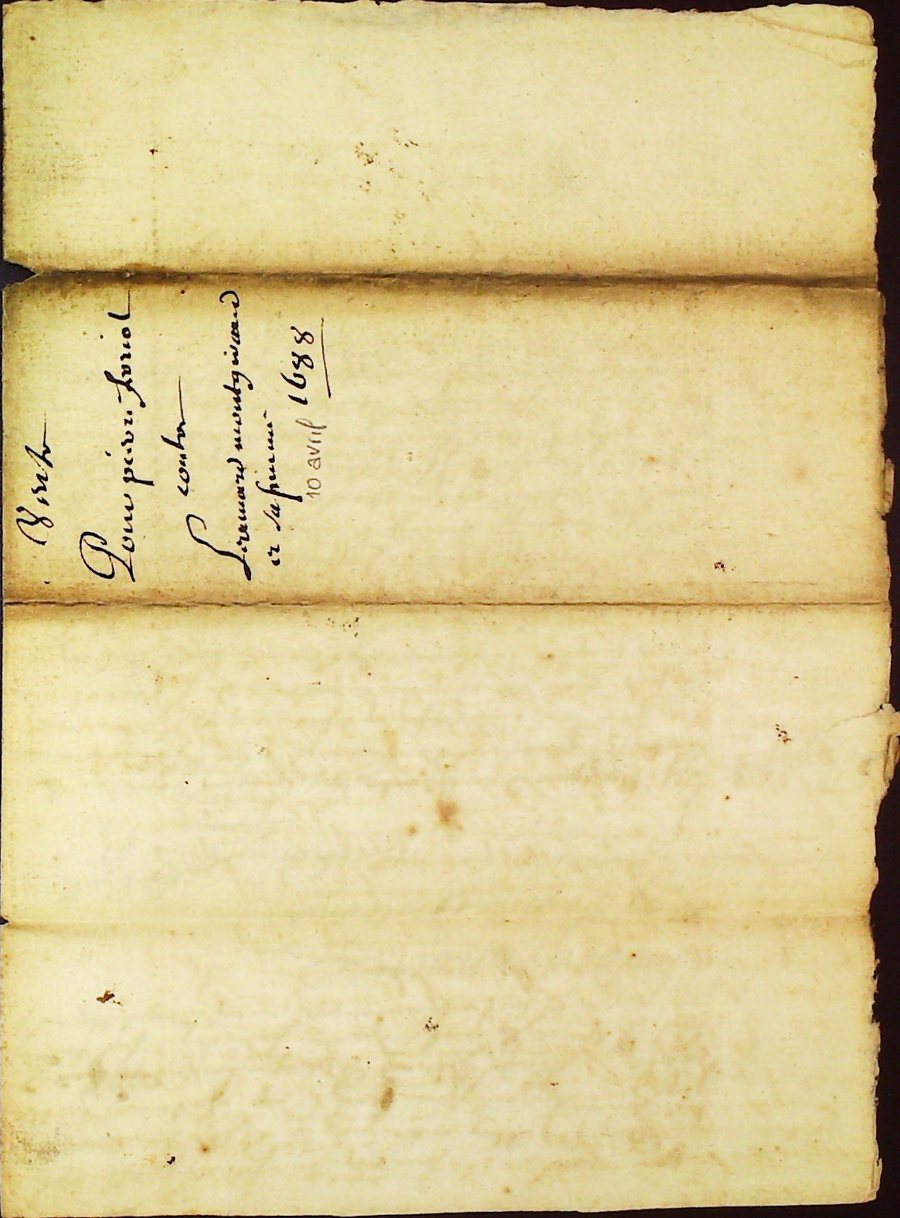 Vente
Pour pierre Loriol
contre
Leonard montgirard
et sa femme 1688
10 avril